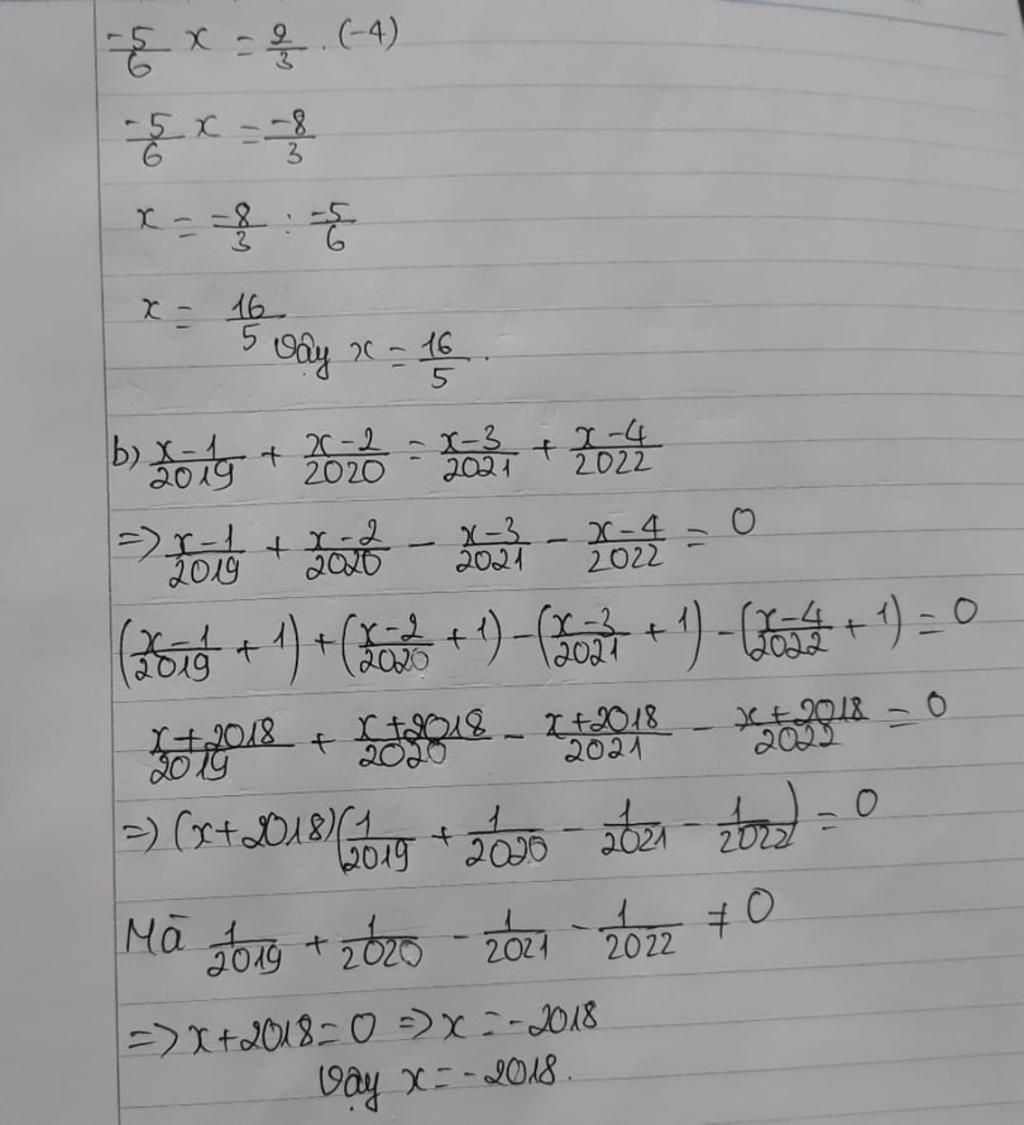 -5/6 x = 2/3 . (-4)
-5/6 x = -8/3
x = -8/3 : -5/6
x = 16/5
Vậy x = 16/5.
b) x-1/2019 + x-2/2020 = x-3/2021 + x-4/2022
=> x-1/2019 + x-2/2020 - x-3/2021 - x-4/2022 = 0
(x-1/2019 + 1) + (x-2/2020 + 1) - (x-3/2021 + 1) - (x-4/2022 + 1) = 0
x+2018/2019 + x+2018/2020 - x+2018/2021 - x+2018/2022 = 0
=> (x+2018)(1/2019 + 1/2020 - 1/2021 - 1/2022) = 0
Mà 1/2019 + 1/2020 - 1/2021 - 1/2022 ≠ 0
=> x+2018 = 0 => x = -2018
Vậy x = -2018.